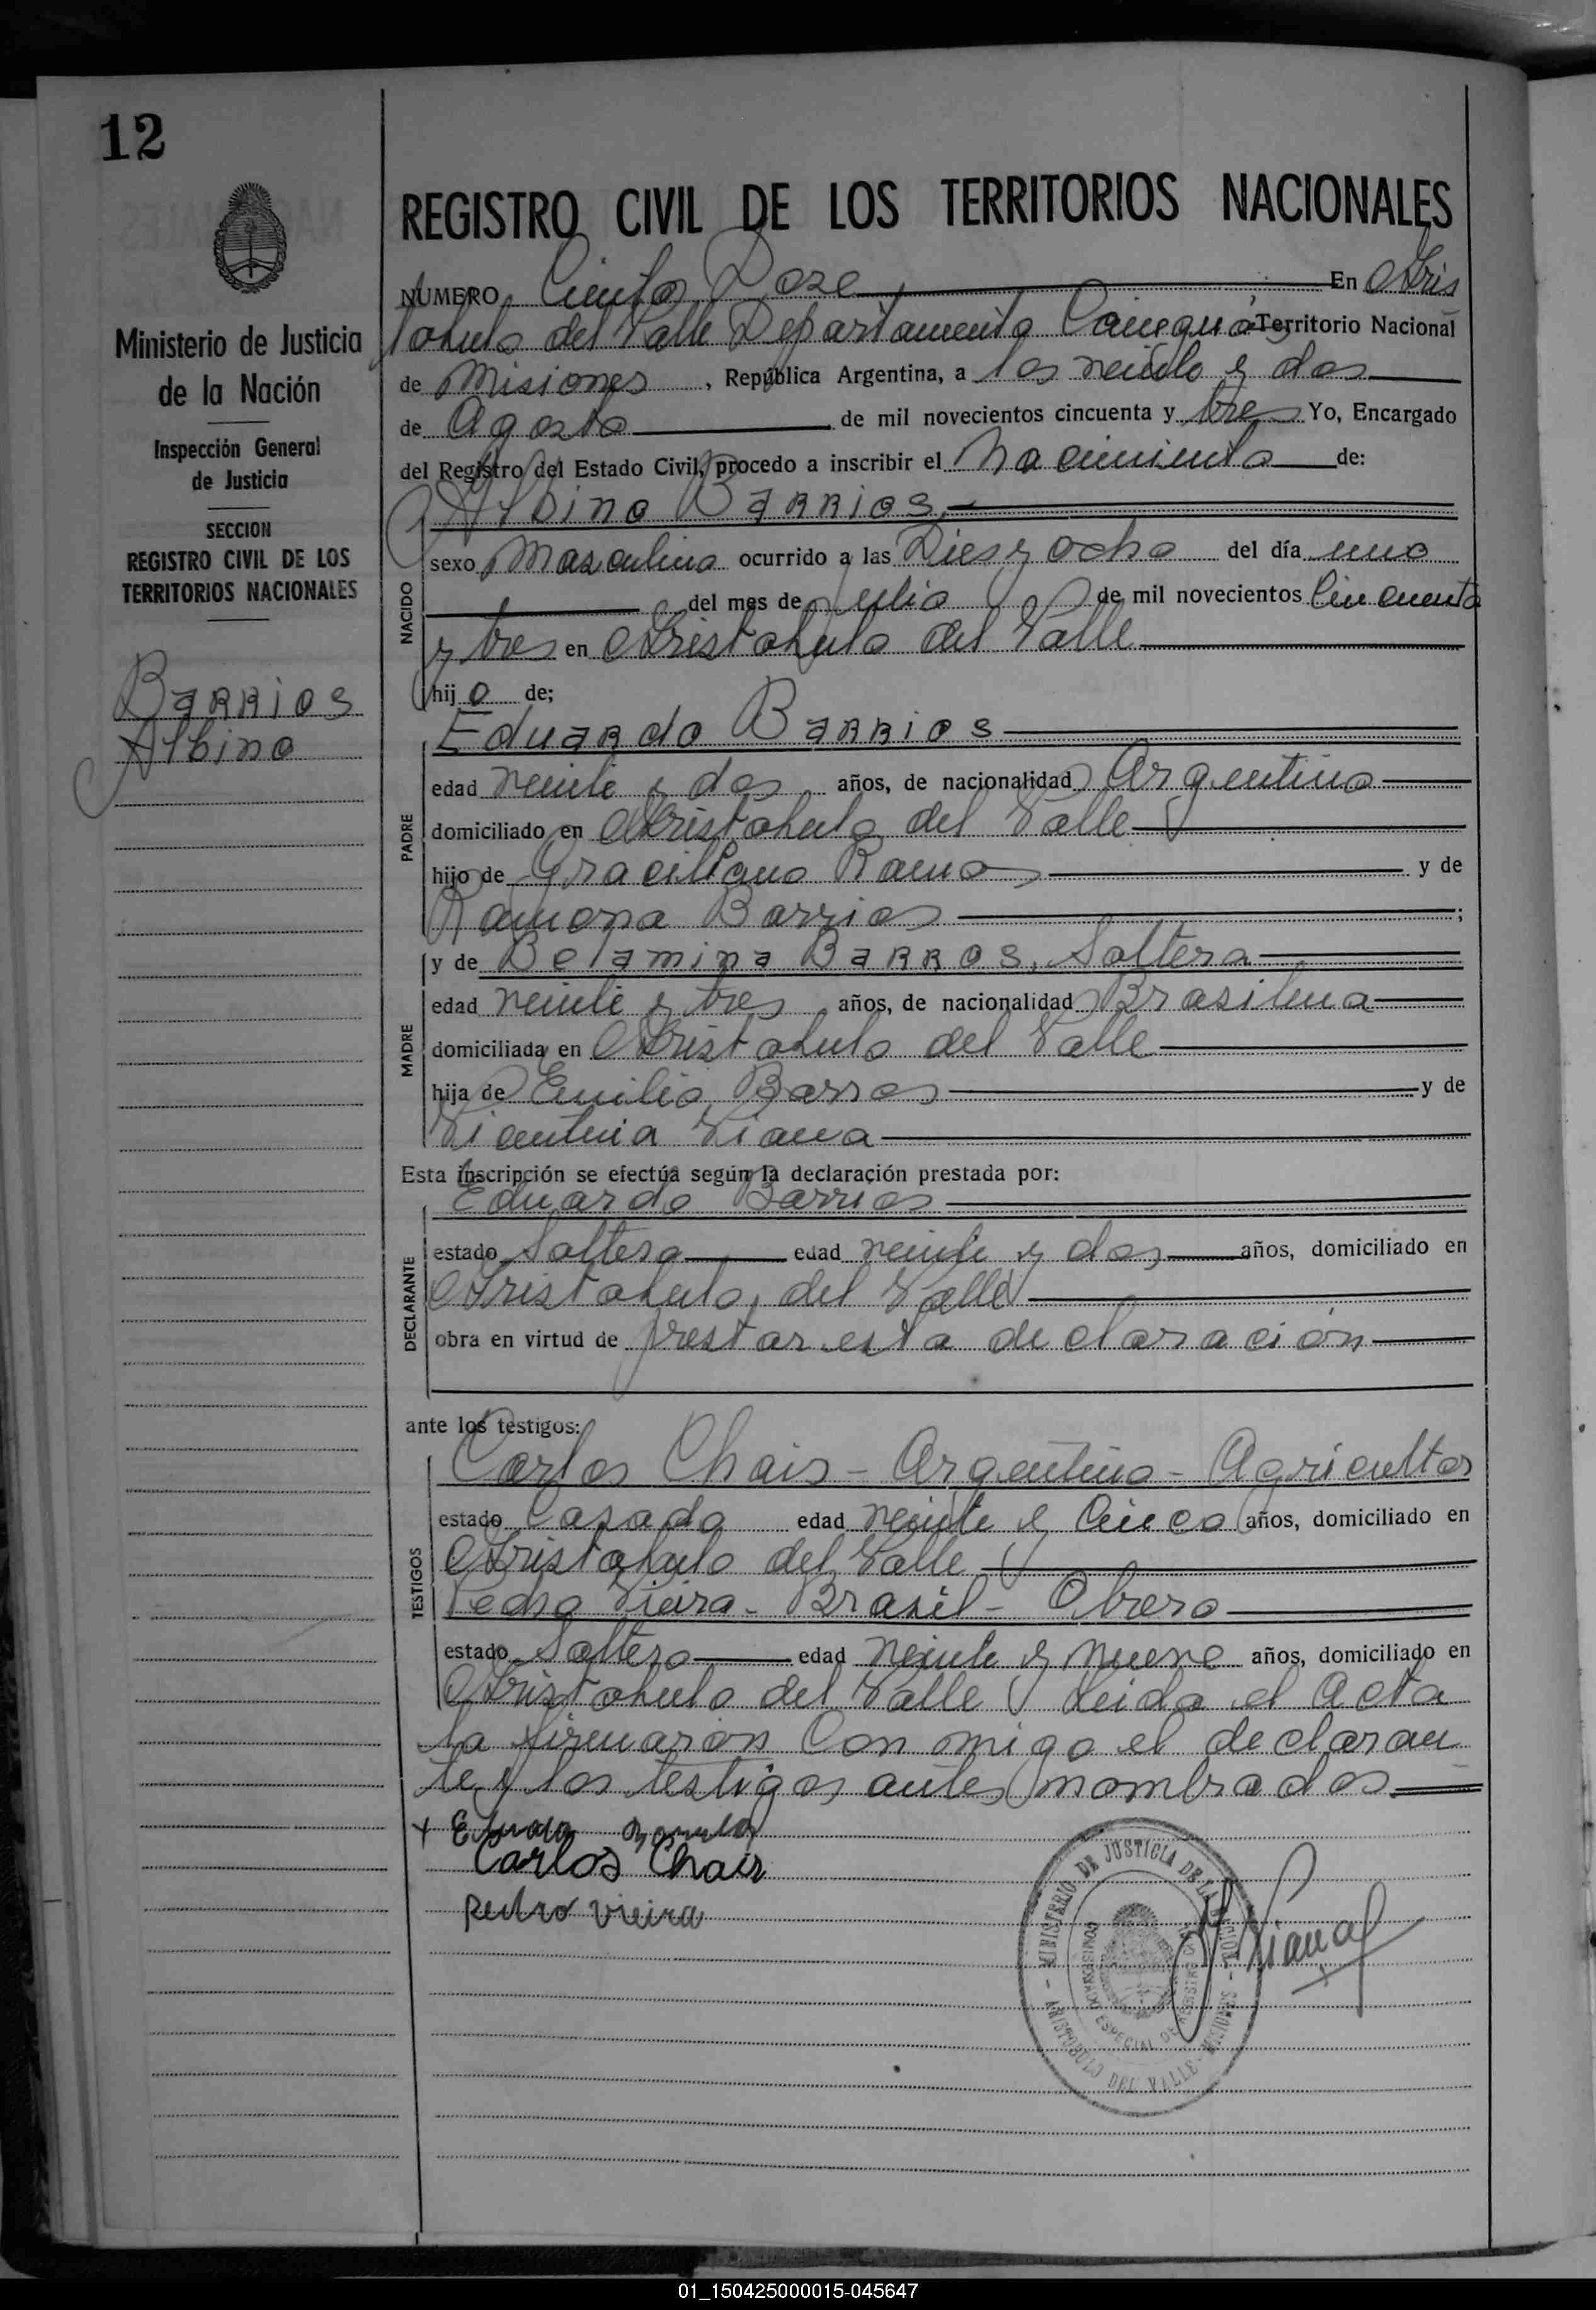 12
REGISTRO CIVIL DE LOS TERRITORIOS NACIONALES
Ministerio de Justicia
de la Nación
Inspección General
de Justicia
SECCION
REGISTRO CIVIL DE LOS
TERRITORIOS NACIONALES
BARRIOS
Albino
NUMERO Ciento Doze En Aris
tobulo del Valle Departamento Cainguás Territorio Nacional
de Misiones, República Argentina, a los veinte y dos
de Agosto de mil novecientos cincuenta y tres Yo, Encargado
del Registro del Estado Civil, procedo a inscribir el Nacimiento de:
Albino BARRIOS.
NACIDO
sexo Masculino ocurrido a las Dies y ocho del día uno
del mes de Julio de mil novecientos Cincuenta
y tres en Aristobulo del Valle
hijo de;
Eduardo BARRIOS
PADRE
edad veinte y dos años, de nacionalidad Argentino
domiciliado en Aristobulo del Valle
hijo de Graciliano Ramos y de
Ramona Barrios ;
y de Belamina BARROS, Soltera
MADRE
edad veinte y tres años, de nacionalidad Brasilena
domiciliada en Aristobulo del Valle
hija de Emilio Barros y de
Vicentina Viana
Esta inscripción se efectúa según la declaración prestada por:
Eduardo Barrios
DECLARANTE
estado Soltero edad veinte y dos años, domiciliado en
Aristobulo, del Valle
obra en virtud de prestar esta declaración
ante los testigos:
Carlos Chais - Argentino - Agricultor
TESTIGOS
estado Casado edad veinte y Cinco años, domiciliado en
Aristobulo del Valle
Pedro Vieira - Brasil - Obrero
estado Soltero edad veinte y nueve años, domiciliado en
Aristobulo del Valle Leida el Acta
la firmaron Con migo el declaran
te y los testigos antes nombrados.
Carlos Chais
Pedro vieira
MINISTERIO DE JUSTICIA DE LA NACION - MISIONES
ARISTOBULO DEL VALLE
01_150425000015-045647